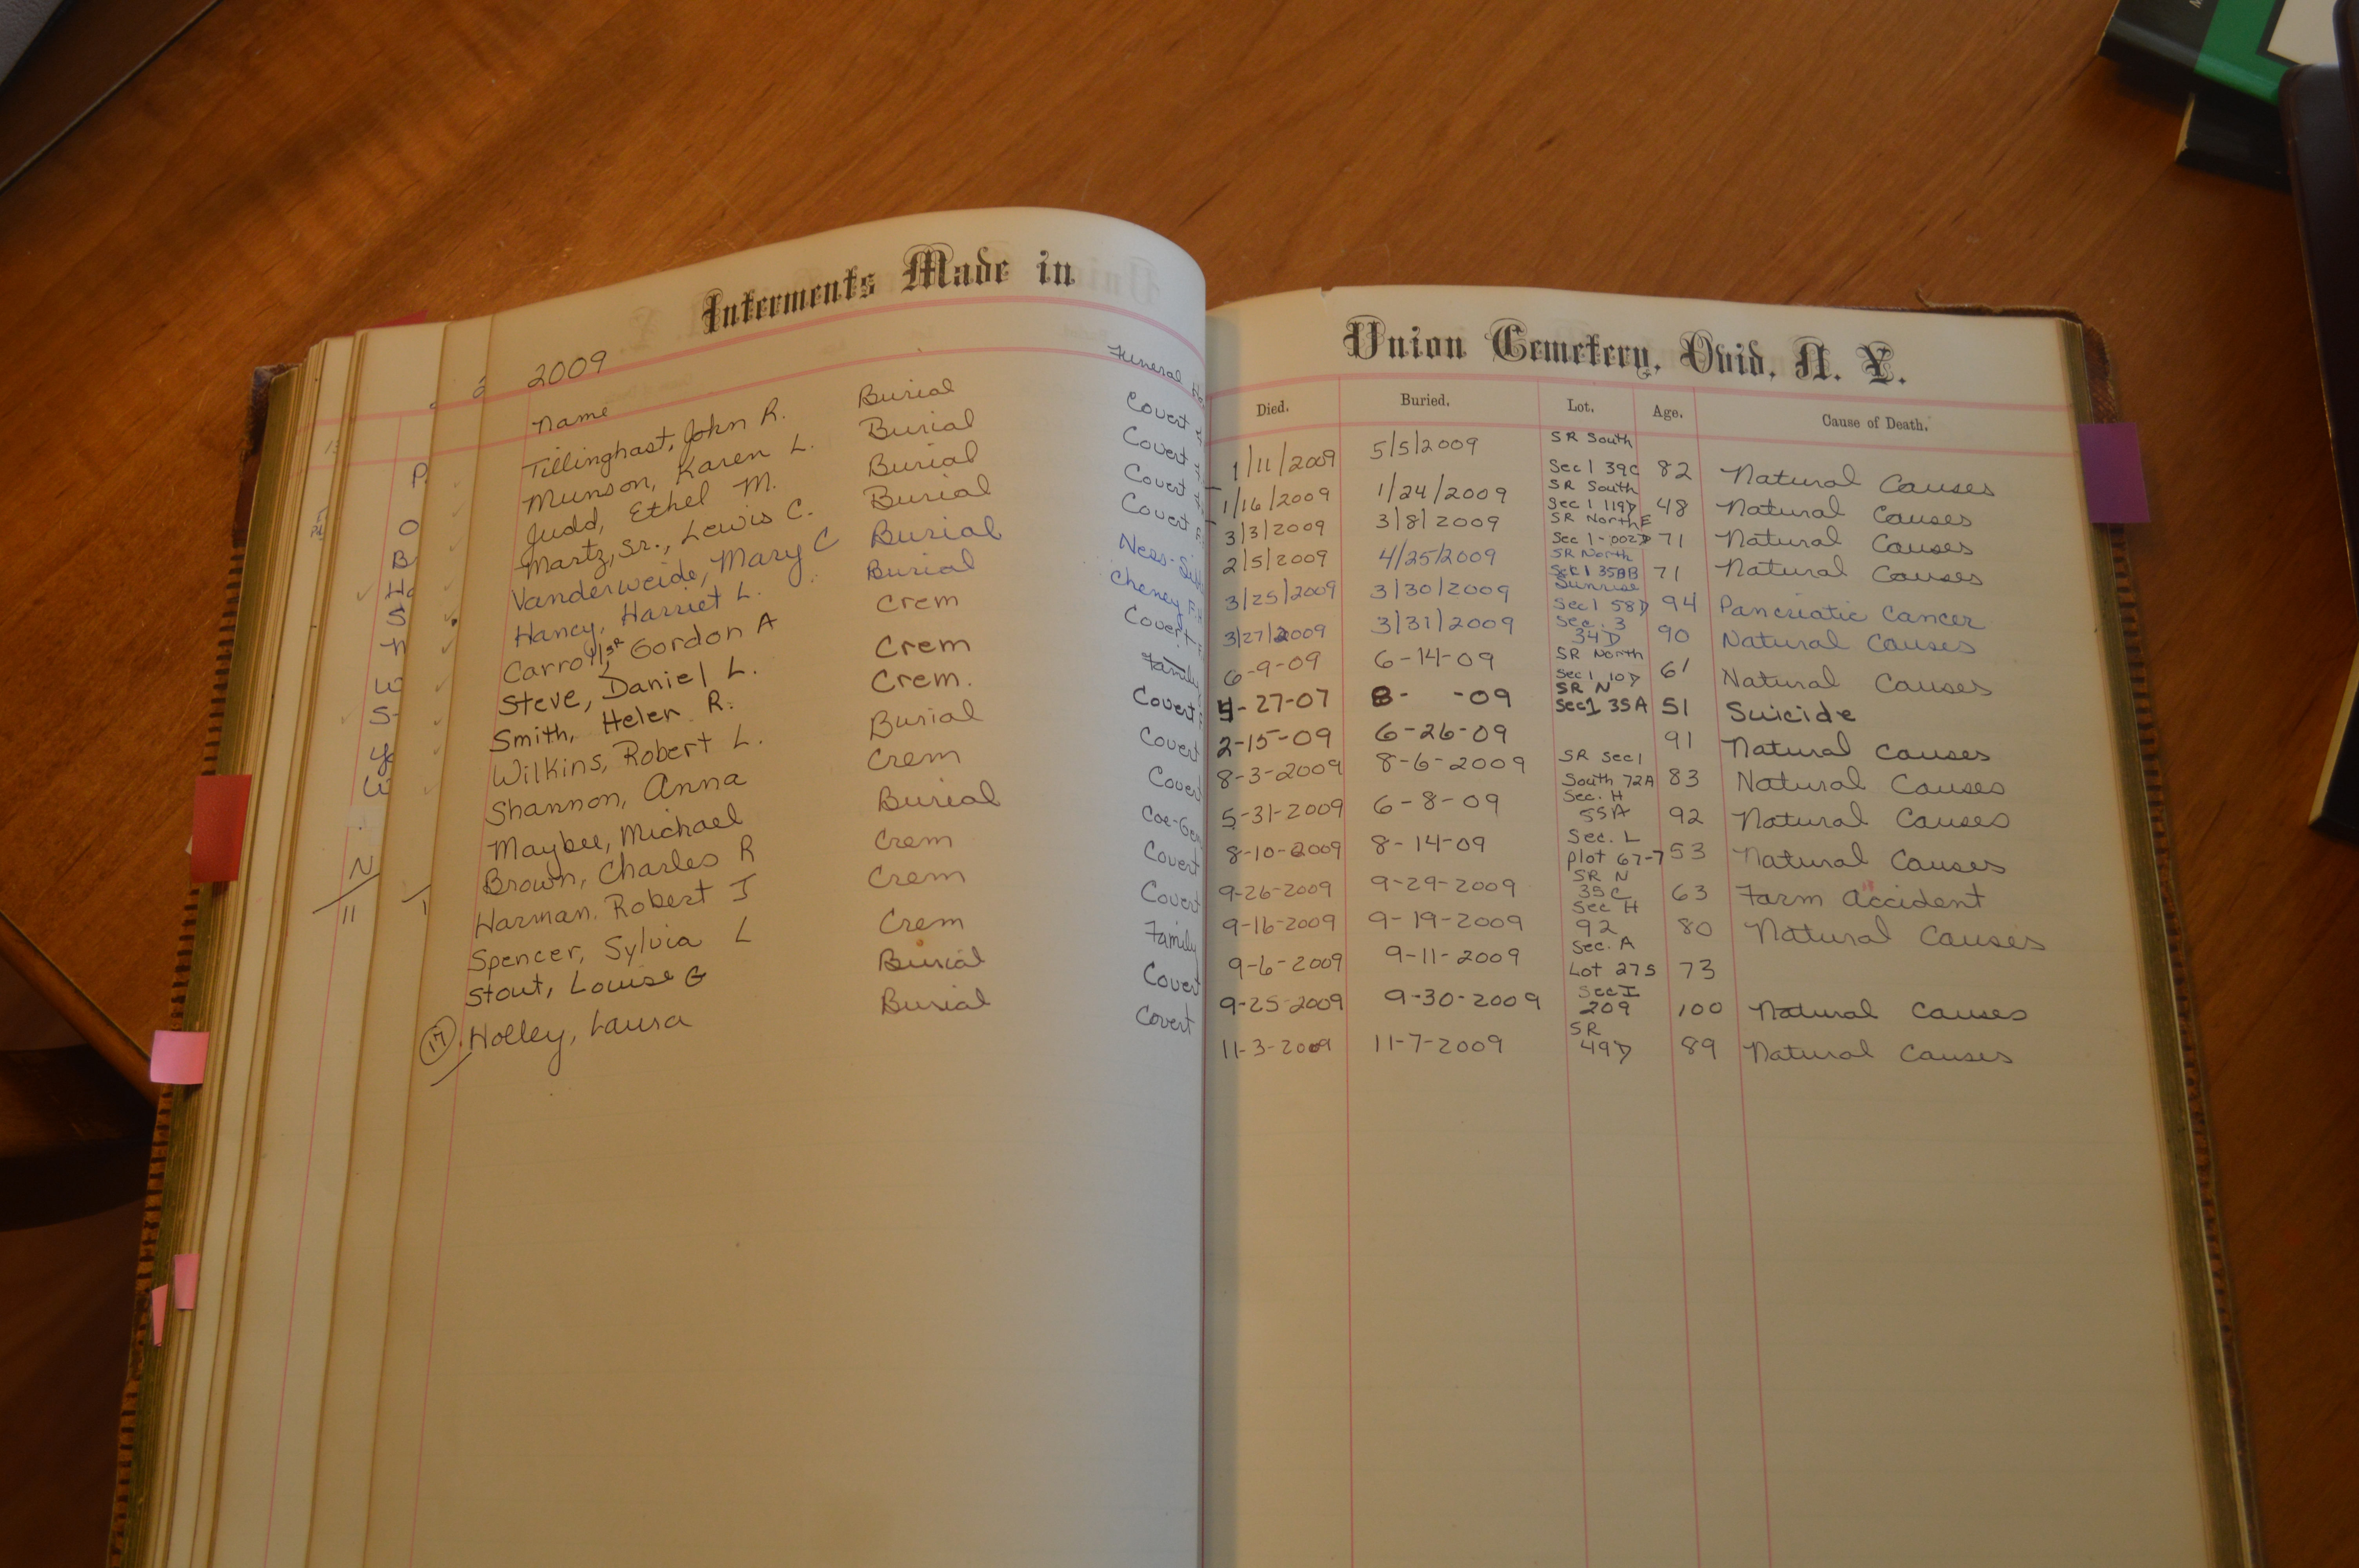 Interments Made in
Union Cemetery, Ovid, N. Y.
2009
name Funeral
Died. Buried. Lot. Age. Cause of Death.
Tillinghast, John R. Burial Covert 1/11/2009 5/5/2009 SR South Sec 1 39C 82 Natural Causes
Munson, Karen L. Burial Covert 1/16/2009 1/24/2009 SR South Sec 1 119D 48 Natural Causes
Judd, Ethel M. Burial Covert 3/3/2009 3/8/2009 SR North E Sec 1-002D 71 Natural Causes
Martz, Sr., Lewis C. Burial Covert 2/5/2009 4/25/2009 SR North Sec 1 35BB 71 Natural Causes
Vanderweide, Mary C Burial Ness- 3/25/2009 3/30/2009 Sunrise Sec 1 58D 94 Pancriatic Cancer
Haney, Harriet L. Burial Cheney 3/27/2009 3/31/2009 Sec. 3 34D 90 Natural Causes
Carroll, Sr Gordon A Crem Covert 6-9-09 6-14-09 SR North Sec 1 10D 61 Natural Causes
Steve, Daniel L. Crem Family 4-27-07 8- -09 SR N Sec 1 35A 51 Suicide
Smith, Helen R. Crem. Covert 2-15-09 6-26-09 91 Natural Causes
Wilkins, Robert L. Burial Covert 8-3-2009 8-6-2009 SR Sec 1 South 72A 83 Natural Causes
Shannon, Anna Crem Covert 5-31-2009 6-8-09 Sec. H 55A 92 Natural Causes
Maybee, Michael Burial Coe-Gen 8-10-2009 8-14-09 Sec. L plot 67-7 53 Natural Causes
Brown, Charles R Crem Covert 9-26-2009 9-29-2009 SR N 35C 63 Farm Accident
Harman, Robert J Crem Covert 9-16-2009 9-19-2009 Sec H 92 80 Natural Causes
Spencer, Sylvia L Crem Family 9-6-2009 9-11-2009 Sec. A Lot 275 73
Stout, Louise G Burial Covert 9-25-2009 9-30-2009 Sec I 209 100 Natural Causes
17 Holley, Laura Burial Covert 11-3-2009 11-7-2009 SR 49D 89 Natural Causes